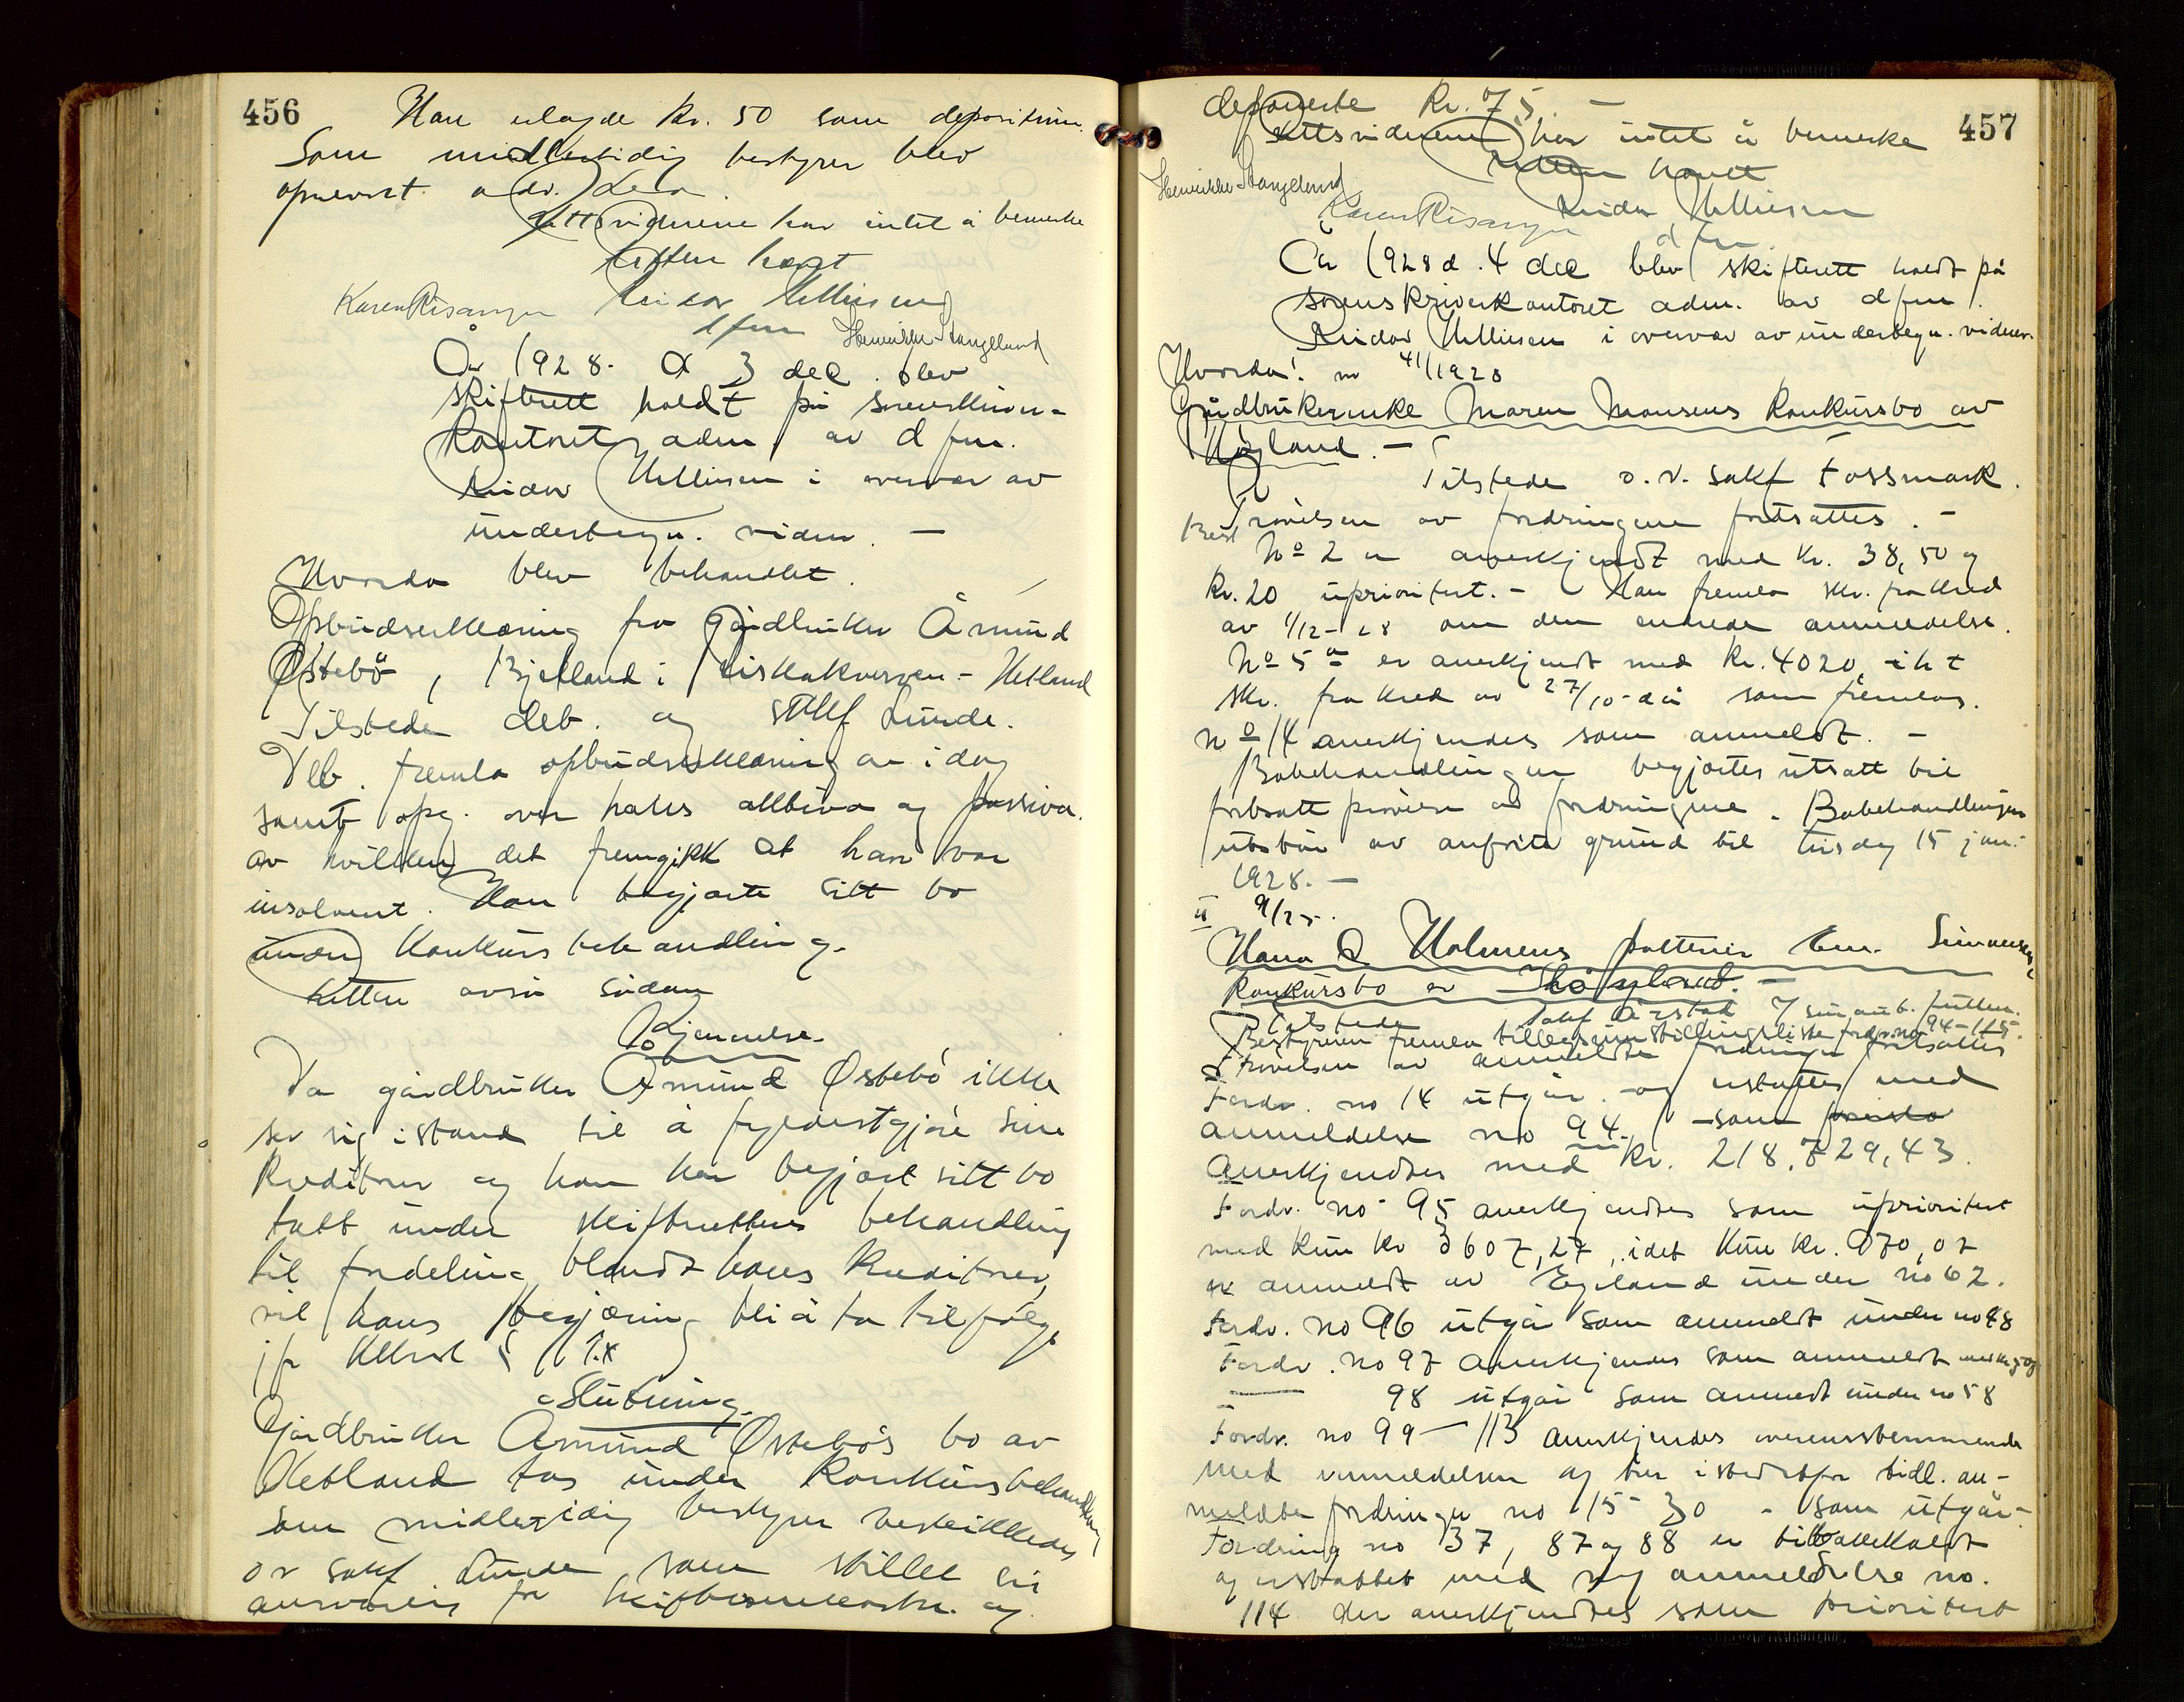 456
Han erlagde kr. 50 som depositum.
Som midlertidig bestyrer blev
opnevnt adv.
Rettsvidnene har intet å bemerke
Retten hevet
Karen Risanger Reidar Mellissen
dfm Henrikke Stangeland
År 1928. d 3 dec. blev
skifterett holdt på sorenskriver-
kontoret adm. av dfm.
Reidar Mellissen i overvær av
undertegn. vidner. —
Hvorda blev behandlet.
Opbudserklæring fra gårdbruker Åmund
Østebö, Bjelland i - Hetland
Tilstede deb. og sakf Lunde.
Deb. fremla opbudserklæring av idag
samt opg. over hans aktiva og passiva.
av hvilken det fremgikk at han var
insolvent. Han begjærte sitt bo
under konkursbehandling.
Retten avsa sådan
Kjennelse.
Da gårdbruker Åmund Østebö ikke
ser sig istand til å fyldestgjöre sine
kreditorer og han har begjært sitt bo
tatt under skifterettens behandling
til fordeling blandt hans kreditorer,
vil hans begjæring bli å ta tilfölge
jfr kklvsl §
Slutning.
Gårdbruker Åmund Østebös bo av
Hetland tas under konkursbehandling
Som midlertidig bestyrer beskikkedes
o r sakf Lunde som stillet sig
ansvarlig for skifteomkostn. og
457
deponerte kr. 75. —
Rettsvidnene har intet å bemerke
Retten hevet
Henrikke Stangeland
Karen Risanger Reidar Mellissen
dfm.
År 1928 d. 4 dec blev skifterett holdt på
sorenskriverkontoret adm. av dfm.
Reidar Mellissen i overvær av undertegn. vidner.
Hvorda: no 41/1928
Gårdbrukerenke Maren Monsens konkursbo av
Høyland. —
Tilstede o.r. sakf Fossmark.
Prövelsen av fordringene fortsattes. —
Best
No 2 er anerkjendt med kr. 38,50 og
kr. 20 uprioritert. — Han fremla skr. fra kred
av 1/12-28 om den endrede anmeldelse.
No 5a er anerkjendt med kr. 4020, iht
skr. fra kred av 27/10-då som fremlas.
No 14 anerkjendes som anmeldt. —
Bobehandlingen begjærtes utsatt til
fortsatt pröven av fordringene. Bobehandlingen
utstår av anförte grund til tirsdag 15 jan.
1928. —
II 9/25.
Hana & Holmens potterier Em. Simonsens
konkursbo av Høyland. —
Tilstede sakf Aarstad
Bestyreren fremla tilleggsinnstillingsliste fordr. no 94-115.
Prövelsen av anmeldte fordringer fortsattes
Fordr. no 14 utgår - og erstattes med
anmeldelse no 94. - som
anerkjendtes med kr. 218,729,43.
Fordr. no 95 anerkjendtes som uprioritert
med kun kr 3607,27, idet kun kr. 970,07
er anmeldt av Egeland under no 62.
Fordr. no 96 utgår som anmeldt under no 48
Fordr. no 97 anerkjendes som anmeldt
— 98 utgår som anmeldt under no 58
Fordr. no 99 — 113 anerkjendes overensstemmende
med anmeldelsen og trer istedetfor tidl. an-
meldte fordringer no 15-30 - som utgår.
Fordring no 37, 87 og 88 er tilbakekaldt
og erstattet med ny anmeldelse no.
114 der anerkjendtes som prioritert